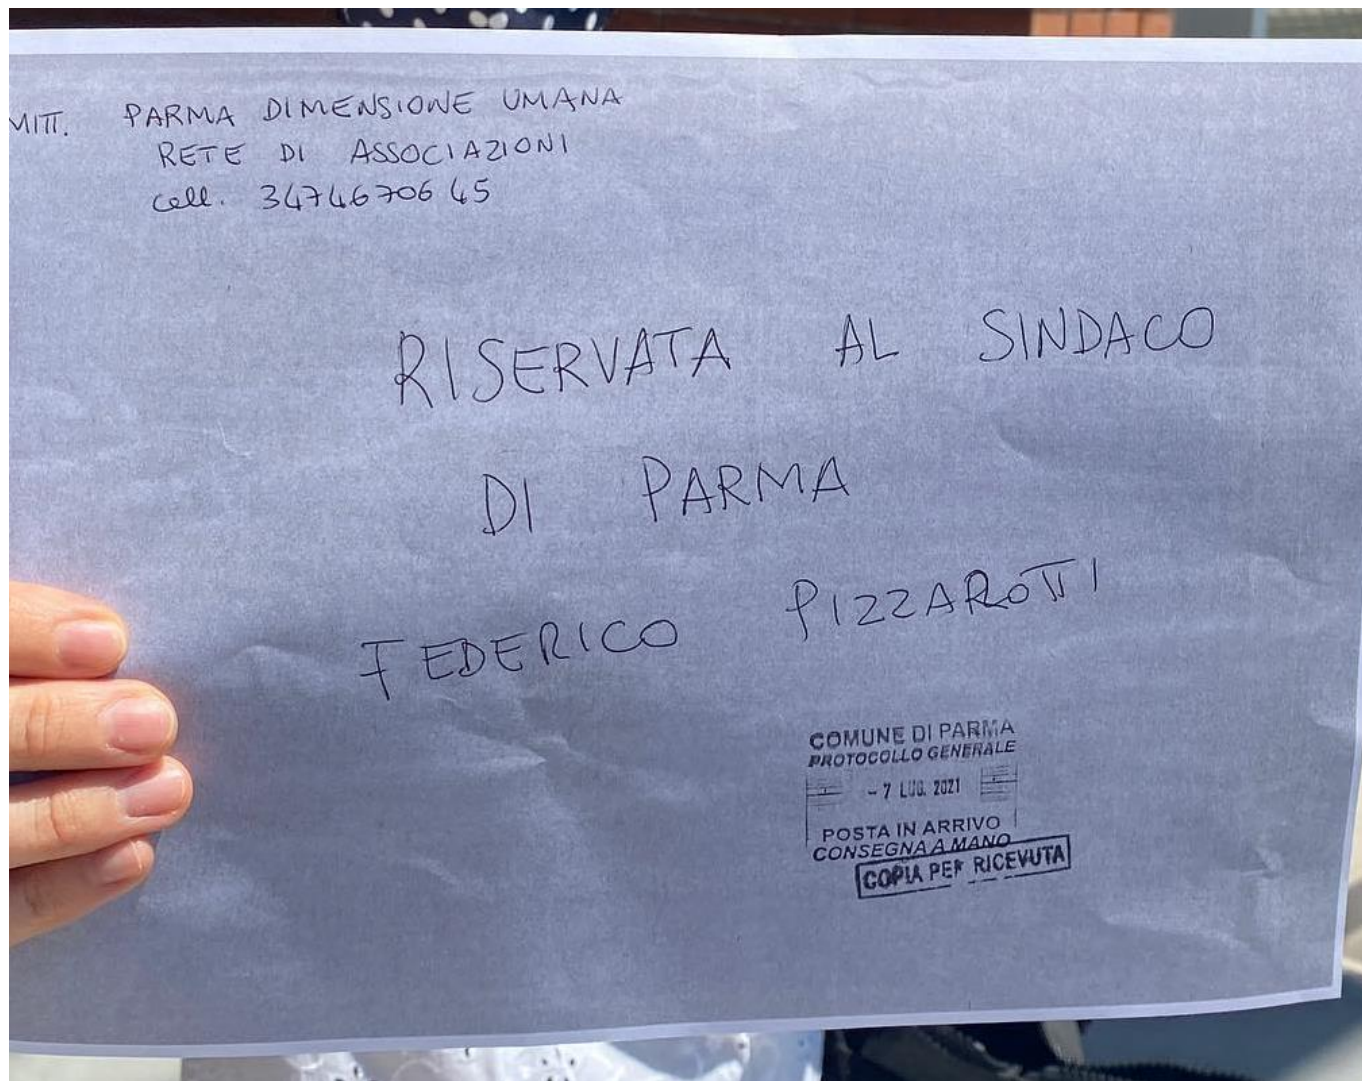 MITT. PARMA DIMENSIONE UMANA
RETE DI ASSOCIAZIONI
cell. 3474670645
RISERVATA AL SINDACO
DI PARMA
FEDERICO PIZZAROTTI
COMUNE DI PARMA
PROTOCOLLO GENERALE
- 7 LUG. 2021
POSTA IN ARRIVO
CONSEGNA A MANO
COPIA PER RICEVUTA